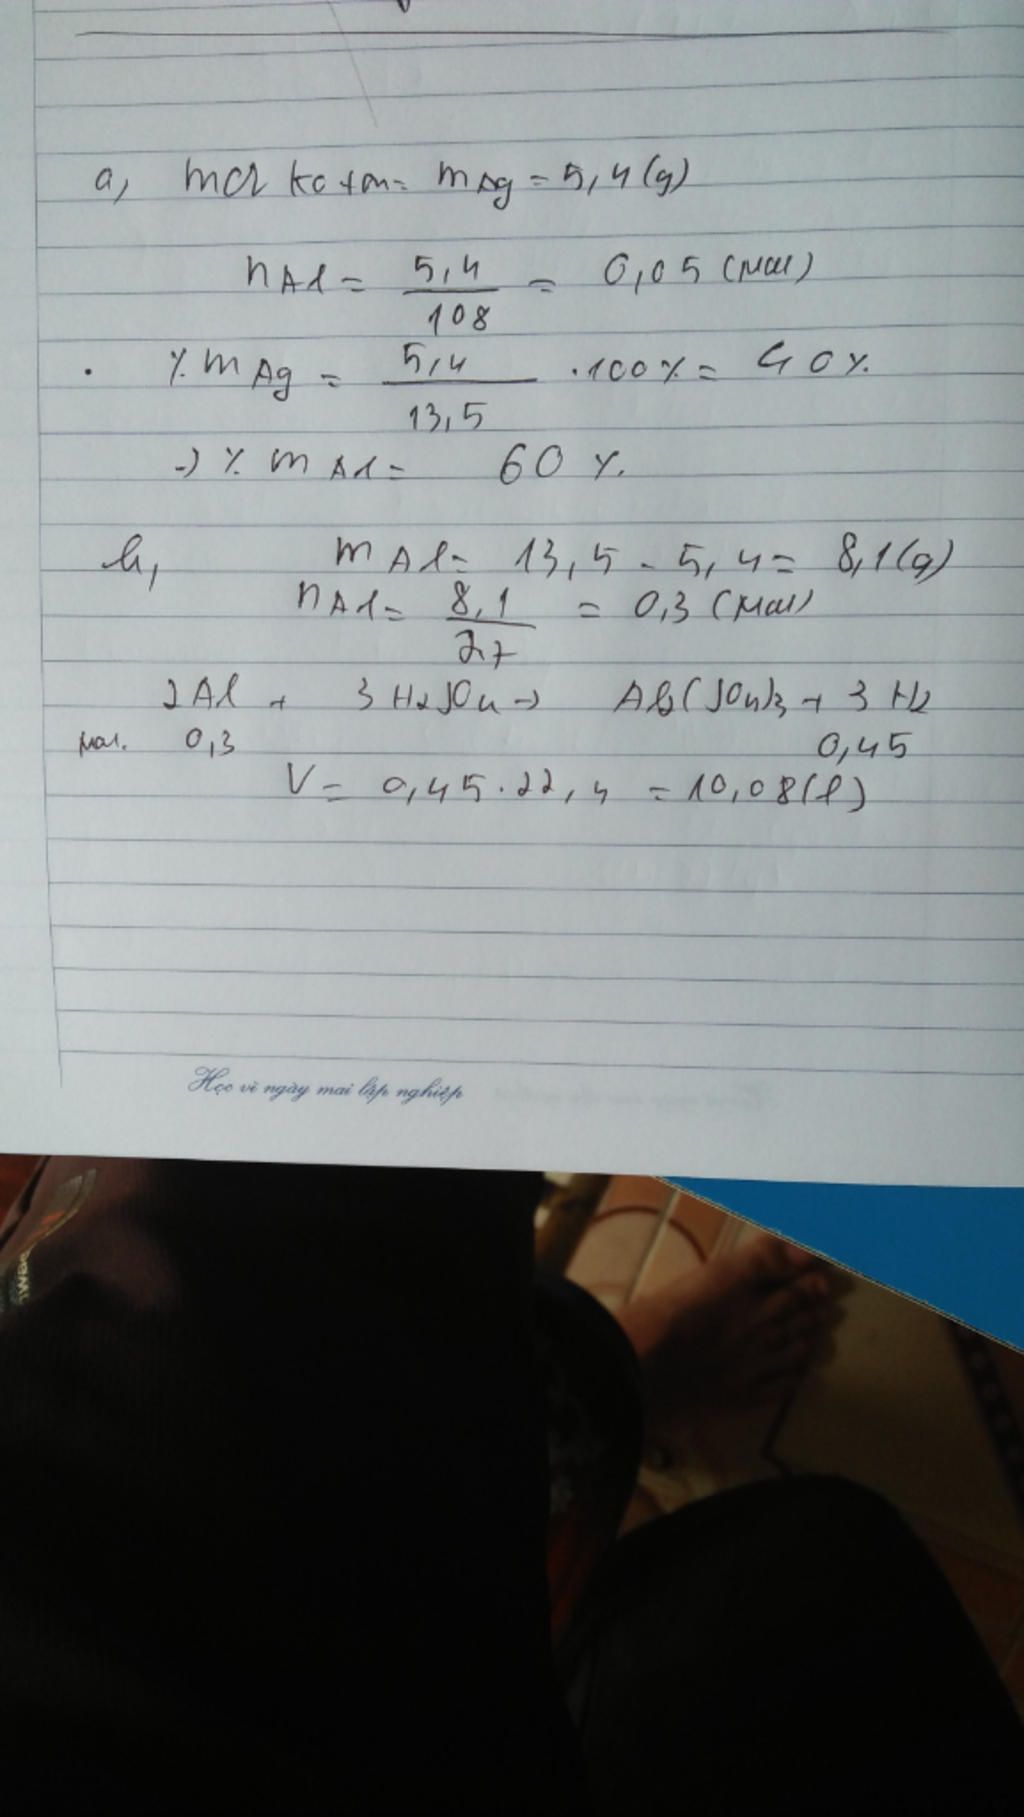 a, mcr ko tan = mAg = 5,4 (g)
nAl = 5,4/108 = 0,05 (mol)
· % mAg = 5,4/13,5 . 100% = 40%.
→ % mAl = 60%.
b, mAl = 13,5 - 5,4 = 8,1 (g)
nAl = 8,1/27 = 0,3 (mol)
2Al + 3H2SO4 → Al2(SO4)3 + 3H2
mol. 0,3 0,45
V = 0,45.22,4 = 10,08 (l)
Học vì ngày mai lập nghiệp